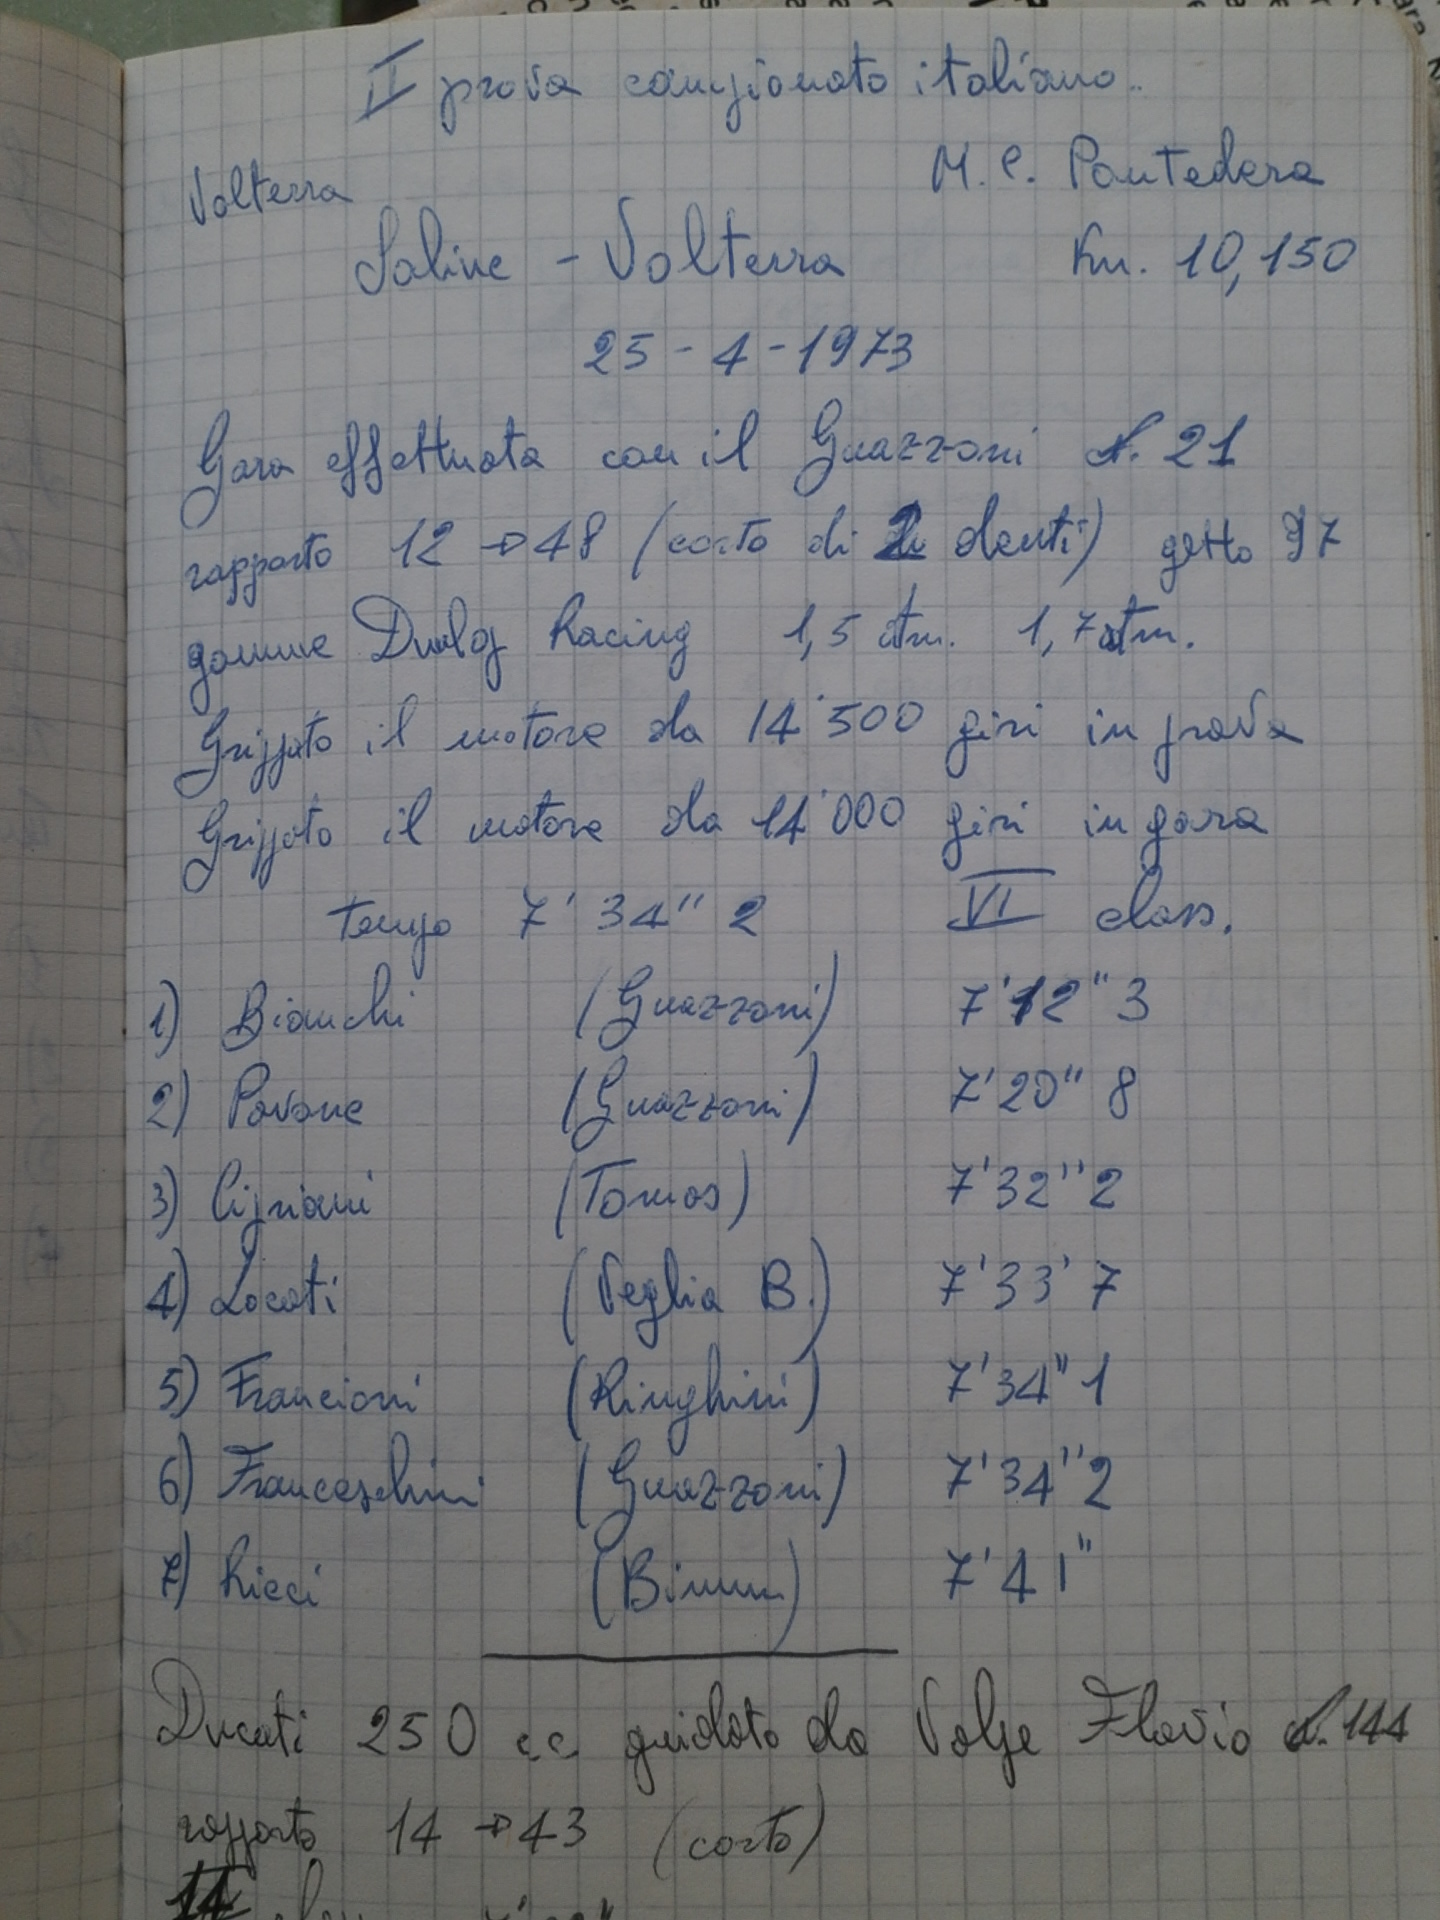 II prova campionato italiano.
M. C. Pontedera
Volterra
Saline - Volterra Km. 10,150
25-4-1973
Gara effettuata con il Guazzoni N. 21
rapporto 12 → 48 (corto di 2 denti) getto 97
gomme Dunlop Racing 1,5 atm. 1,7 atm.
Grippato il motore da 14'500 giri in prova
Grippato il motore da 14'000 giri in gara
tempo 7' 34'' 2 VI class.
1) Bianchi (Guazzoni) 7'12'' 3
2) Pavone (Guazzoni) 7'20'' 8
3) Cipriani (Tomos) 7'32'' 2
4) Locati (Veglia B.) 7'33' 7
5) Francioni (Ringhini) 7'34'' 1
6) Franceschini (Guazzoni) 7'34'' 2
7) Ricci (Bimm) 7'41''
Ducati 250 cc guidato da Volpe Flavio N. 144
rapporto 14 → 43 (corto)